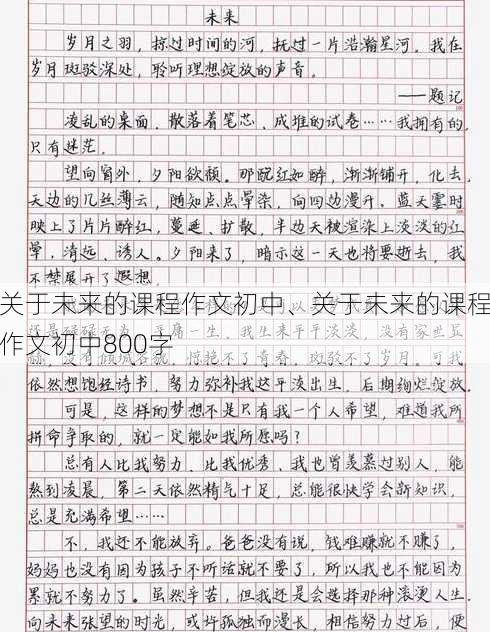 未来
岁月之羽，掠过时间的河，抚过一片浩瀚星河。我在
岁月斑驳深处，聆听理想绽放的声音。
——题记
凌乱的桌面，散落着笔芯、成堆的试卷……我拥有的，
只有迷茫。
望向窗外，夕阳欲颓。那酡红如醉，渐渐铺开，化去。
天边的几丝薄云，随知点点晕染，向四边漫开。蓝天霎时
映上了片片醉红，蔓延、扩散，半边天被渲染上淡淡的红
晕，清远、诱人。夕阳来了，暗示这一天也将要逝去，我
不禁展开了遐想。
关于未来的课程作文初中、关于未来的课程
作文初中800字
依然想饱经诗书，努力弥补我这平淡出生，后期绚烂绽放。
可是，这样的梦想不是只有我一个人希望，难道我所
拼命争取的，就一定能如我所愿吗？
总有人比我努力、比我优秀、我也曾羡慕过别人，能
熬到凌晨，第二天依然精气十足，总能很快学会新知识，
总是充满希望……
不，我还不能放弃。爸爸没有说，钱难赚就不赚了，
妈妈也没有因为孩子不听话就不要了，所以我也不能因为
累就不努力了。虽然辛苦，但我还是会选择那种滚烫人生。
向未来张望的时光，或许孤独而漫长，相信努力过后，便